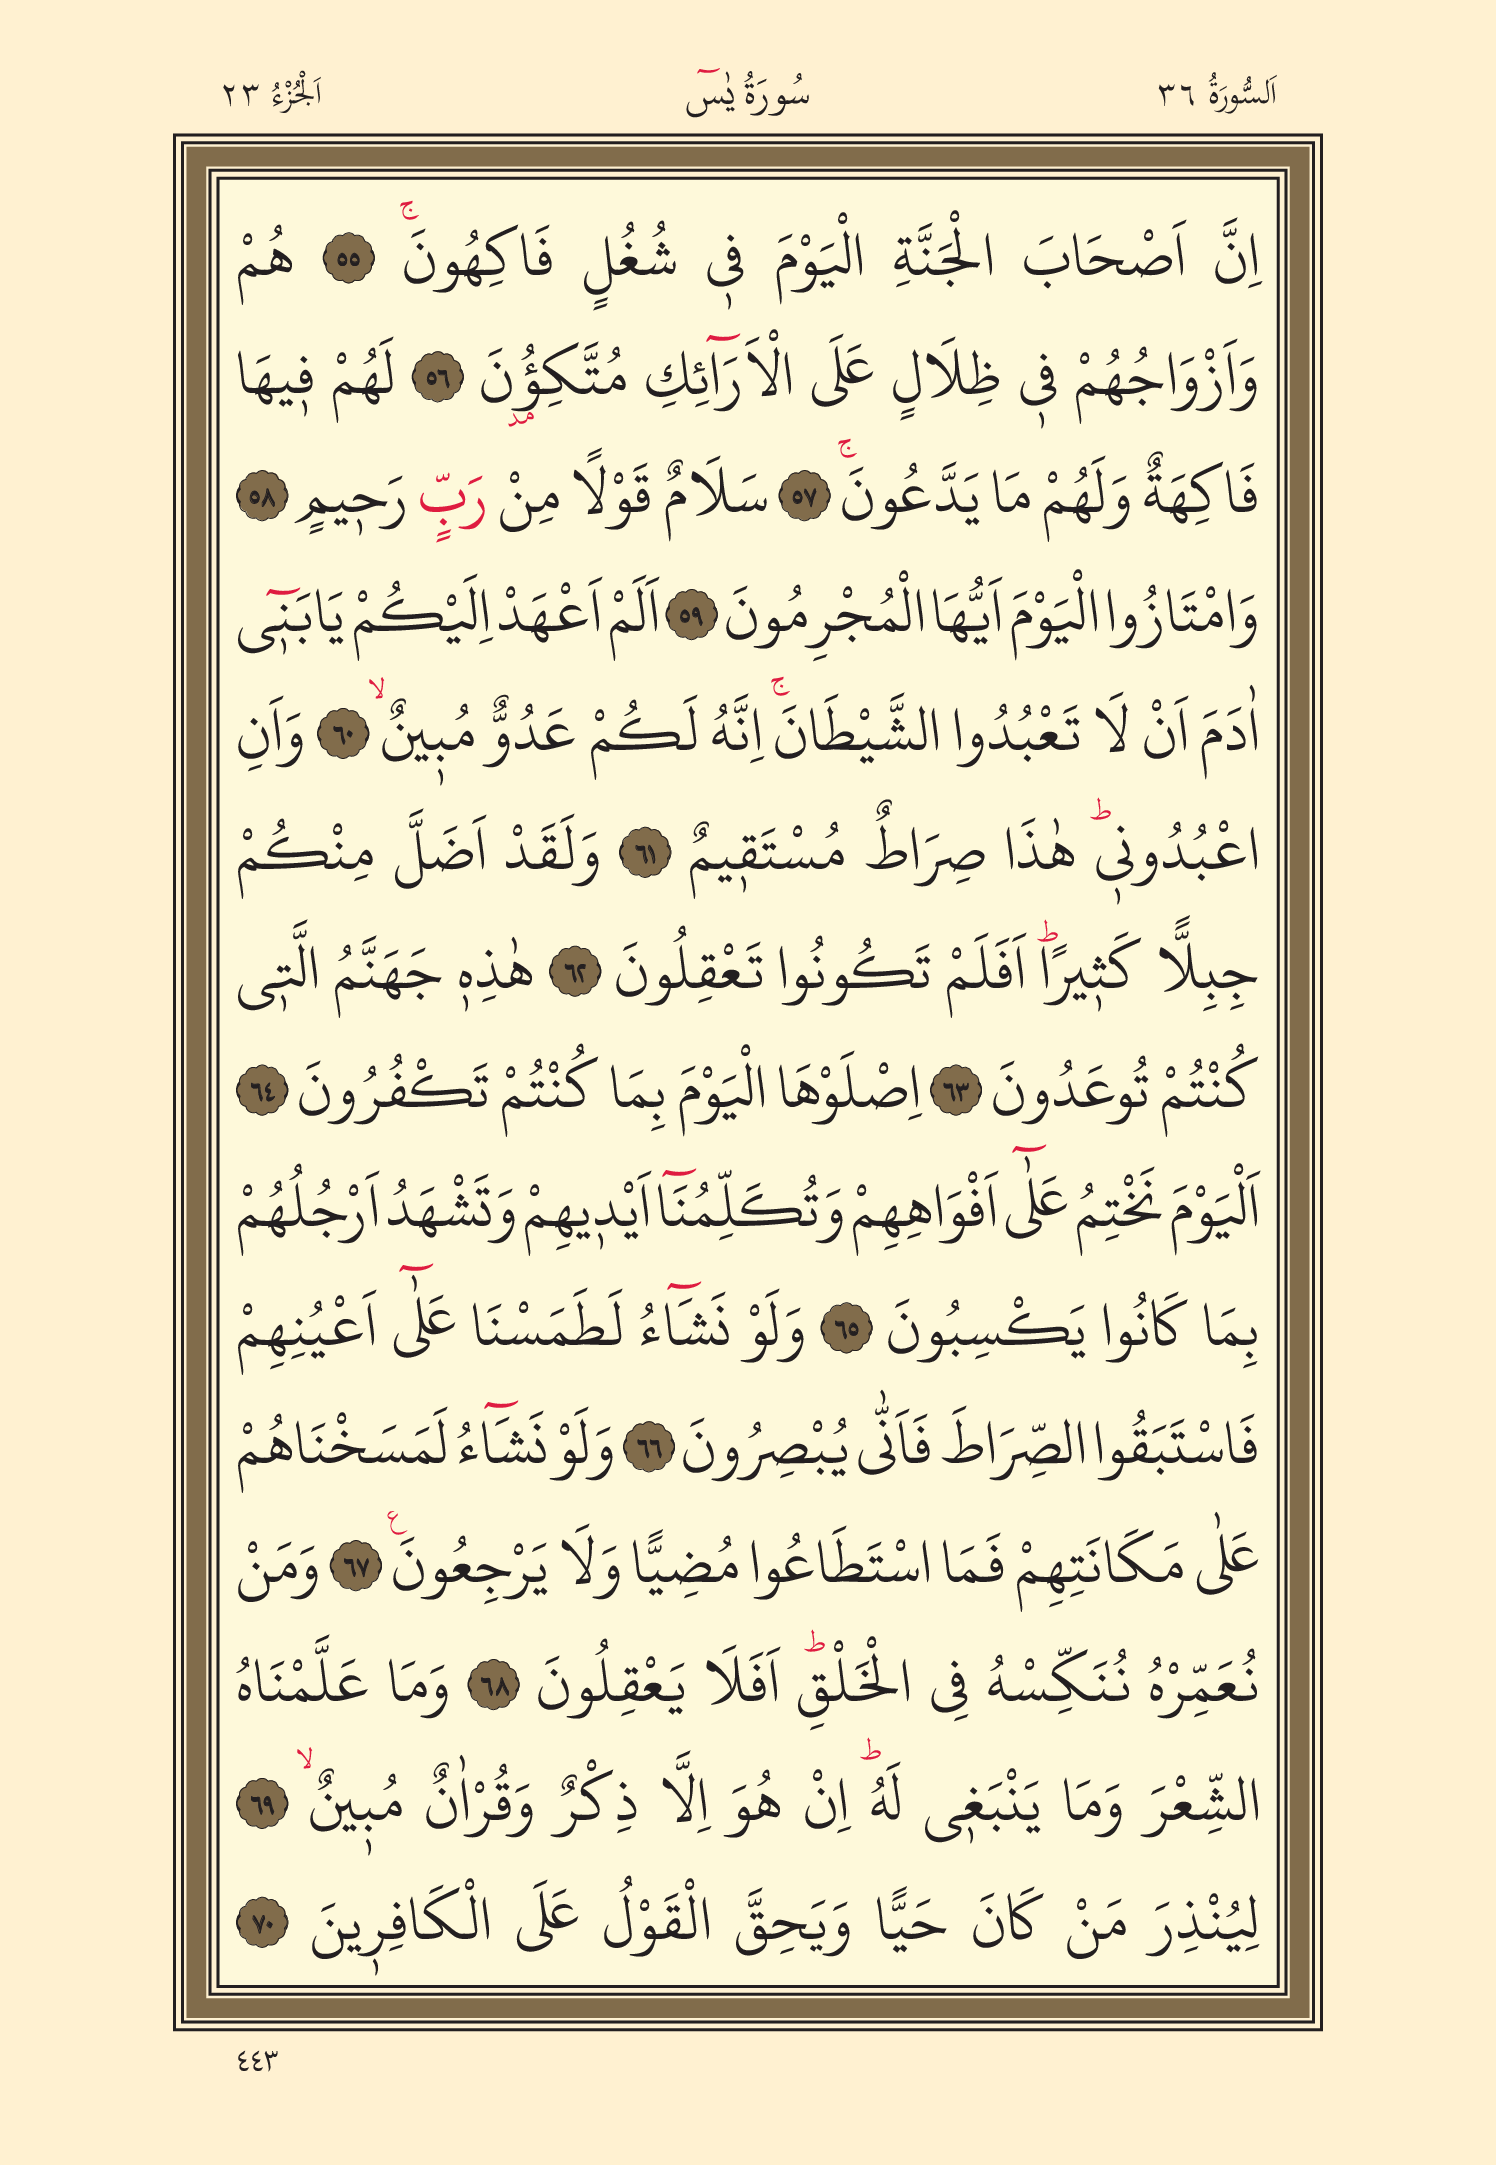 اَلسُّورَةُ ٣٦ سُورَةُ يٰسٓ اَلْجُزْءُ ٢٣
اِنَّ اَصْحَابَ الْجَنَّةِ الْيَوْمَ ف۪ي شُغُلٍ فَاكِهُونَۚ ﴿٥٥﴾ هُمْ
وَاَزْوَاجُهُمْ ف۪ي ظِلَالٍ عَلَى الْاَرَٓائِكِ مُتَّكِؤُ۫نَ ﴿٥٦﴾ لَهُمْ ف۪يهَا
فَاكِهَةٌ وَلَهُمْ مَا يَدَّعُونَۚ ﴿٥٧﴾ سَلَامٌ قَوْلًا مِنْ رَبٍّ رَح۪يمٍ ﴿٥٨﴾
وَامْتَازُوا الْيَوْمَ اَيُّهَا الْمُجْرِمُونَ ﴿٥٩﴾ اَلَمْ اَعْهَدْ اِلَيْكُمْ يَابَن۪ٓي
اٰدَمَ اَنْ لَا تَعْبُدُوا الشَّيْطَانَۚ اِنَّهُ لَكُمْ عَدُوٌّ مُب۪ينٌۙ ﴿٦٠﴾ وَاَنِ
اعْبُدُون۪يۜ هٰذَا صِرَاطٌ مُسْتَق۪يمٌ ﴿٦١﴾ وَلَقَدْ اَضَلَّ مِنْكُمْ
جِبِلًّا كَث۪يرًاۜ اَفَلَمْ تَكُونُوا تَعْقِلُونَ ﴿٦٢﴾ هٰذِه۪ جَهَنَّمُ الَّت۪ي
كُنْتُمْ تُوعَدُونَ ﴿٦٣﴾ اِصْلَوْهَا الْيَوْمَ بِمَا كُنْتُمْ تَكْفُرُونَ ﴿٦٤﴾
اَلْيَوْمَ نَخْتِمُ عَلٰٓى اَفْوَاهِهِمْ وَتُكَلِّمُنَٓا اَيْد۪يهِمْ وَتَشْهَدُ اَرْجُلُهُمْ
بِمَا كَانُوا يَكْسِبُونَ ﴿٦٥﴾ وَلَوْ نَشَٓاءُ لَطَمَسْنَا عَلٰٓى اَعْيُنِهِمْ
فَاسْتَبَقُوا الصِّرَاطَ فَاَنّٰى يُبْصِرُونَ ﴿٦٦﴾ وَلَوْ نَشَٓاءُ لَمَسَخْنَاهُمْ
عَلٰى مَكَانَتِهِمْ فَمَا اسْتَطَاعُوا مُضِيًّا وَلَا يَرْجِعُونَ ع ﴿٦٧﴾ وَمَنْ
نُعَمِّرْهُ نُنَكِّسْهُ فِي الْخَلْقِۜ اَفَلَا يَعْقِلُونَ ﴿٦٨﴾ وَمَا عَلَّمْنَاهُ
الشِّعْرَ وَمَا يَنْبَغ۪ي لَهُۜ اِنْ هُوَ اِلَّا ذِكْرٌ وَقُرْاٰنٌ مُب۪ينٌۙ ﴿٦٩﴾
لِيُنْذِرَ مَنْ كَانَ حَيًّا وَيَحِقَّ الْقَوْلُ عَلَى الْكَافِر۪ينَ ﴿٧٠﴾
٤٤٣